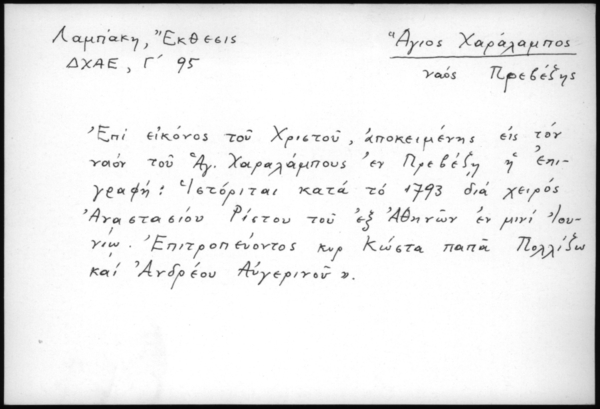 Λαμπάκη, Ἔκθεσις
ΔΧΑΕ, Γ΄ 95
Ἅγιος Χαράλαμπος
ναός Πρεβέζης
Ἐπί εἰκόνος τοῦ Χριστοῦ, ἀποκειμένης εἰς τόν
ναόν τοῦ Ἁγ. Χαραλάμπους ἐν Πρεβέζῃ ἡ ἐπι-
γραφή: Ἱστόριται κατά τό 1793 διά χειρός
Ἀναστασίου Ρίστου τοῦ ἐξ Ἀθηνῶν ἐν μινί Ἰου-
νίῳ. Ἐπιτροπεύοντος κυρ Κώστα παπᾶ Πολλίζω
καί Ἀνδρέου Αὐγερινοῦ».